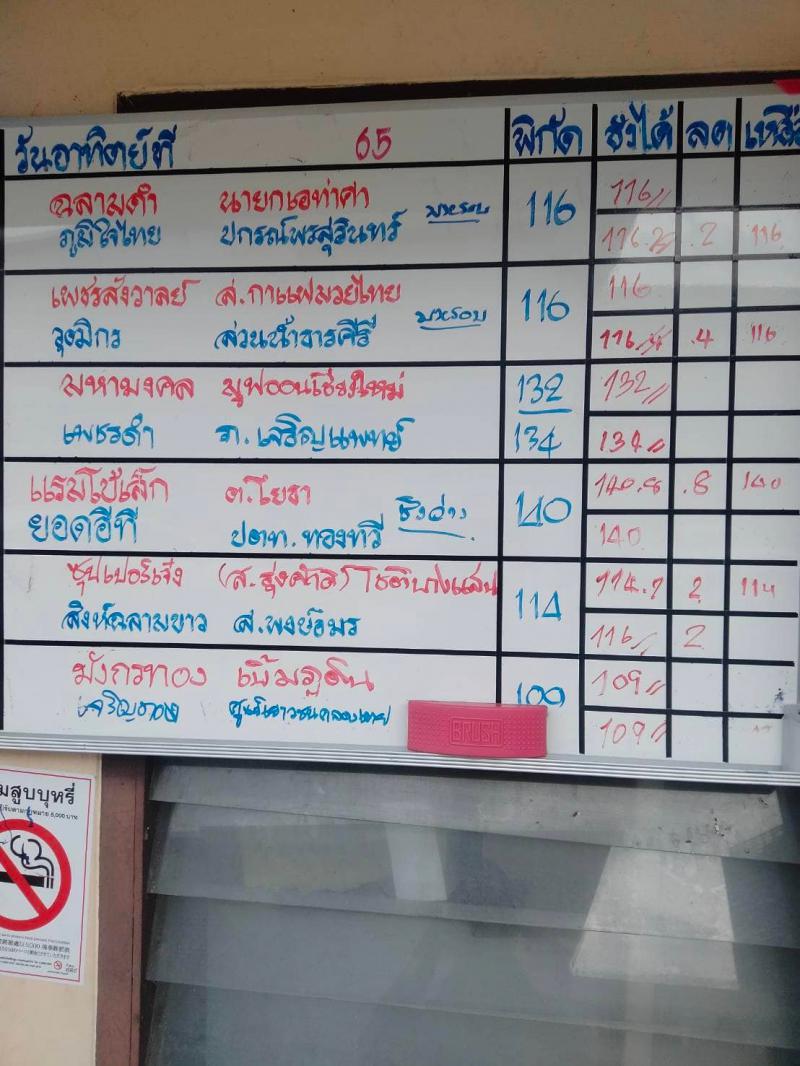 วันอาทิตย์ที่ 65 พิกัด ชั่งได้ ลด
ฉลามดำ นายกเอท่าศาลา 116 116
ภูมิใจไทย ปกรณ์พรสุรินทร์ มวยรอบ 116.2 .2 116
เพชรสังวาลย์ ส.กาแฟมวยไทย 116 116
รุ่งมิกร สวนน้ำธารคีรี มวยรอบ 116.4 .4 116
มหามงคล มูฟออนเชียงใหม่ 132 132
เพชรดำ ภ.เจริญแพทย์ 134 134
แรมโบ้เล็ก ต.โยธา 140 140.8 .8 140
ยอดอีที ปตท.ทองทวี 140
ซุปเปอร์เจ๋ง 114 2 114
สิงห์ฉลามขาว ส.พงษ์อมร 116 2
มังกรทอง 109 109
เจริญทอง 109
BRUSH
มสูบบุหรี่
5,000 บาท